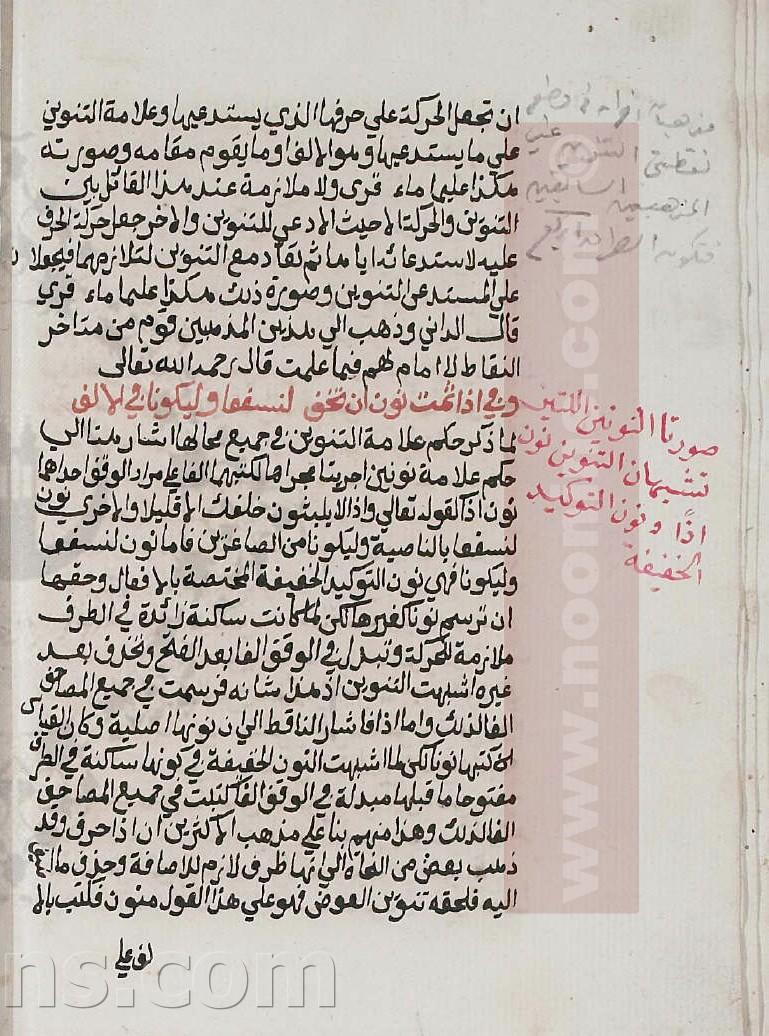 ان تجعل الحركة علي حرفها الذي يستدعيها وعلامة التنوين
علي ما يستدعيها وهو الالف او ما يقوم مقامه وصورته
هكذا عليما ماء قرى ولا ملازمة عند هذا القائل بين
التنوين والحركة الا حيث الادعي للتنوين والاخر جعل حركة الحرف
عليه لاستدعائه اياها ثم تقاد مع التنوين لتلازمهما فيجعلان
علي المستدعى التنوين وصورة ذلك هكذا عليما ماء قرى
قال الداني وذهب الي هذين المذهبين قوم من متاخر
النقاط لا امام لهم فيما علمت قال رحمه الله تعالى
وفي اذا ثمت نون ان تخف لنسفعا وليكونا في الالف
لما ذكر حكم علامة التنوين في جميع محالها اشار هنا الي
حكم علامة نونين اجريتا مجراها لكتبهما الفا علي مراد الوقف احداهما
نون اذا كقوله تعالي واذا لا يلبثون خلفك الا قليلا والاخرى نون
لنسفعا بالناصية وليكونا من الصاغرين فاما نون لنسفعا
وليكونا فهي نون التوكيد الخفيفة المختصة بالافعال وحقها
ان ترسم نونا كغيرها لكن لما كانت ساكنة زائدة في الطرف
ملازمة للحركة وتبدل في الوقف الفا بعد الفتح وتحذف بعد
غيره اشبهت التنوين اذ هذا شانه فرسمت في جميع المصاحف
الفا لذلك واما اذا فاشار الناقط الي ان نونها اصلية وكان القياس
كتبها نونا لكن لما اشبهت النون الخفيفة في كونها ساكنة في الطرف
مفتوحا ما قبلها مبدلة في الوقف الفا كتبت في جميع المصاحف
الفا لذلك وهذا منهم بنا علي مذهب الاكثرين ان اذا حرف وقد
ذهب بعض من النحاة الي انها ظرف لازم للاضافة وحذف ما
اليه فلحقه تنوين العوض فهو علي هذا القول منون فكتب بالا
لف علي
نقطتي التنوين علي
السابقين
المذهبين
صورتا النونين اللتين
تشبهان التنوين نون
اذا ونون التوكيد
الخفيفة
www.noor
ns.com